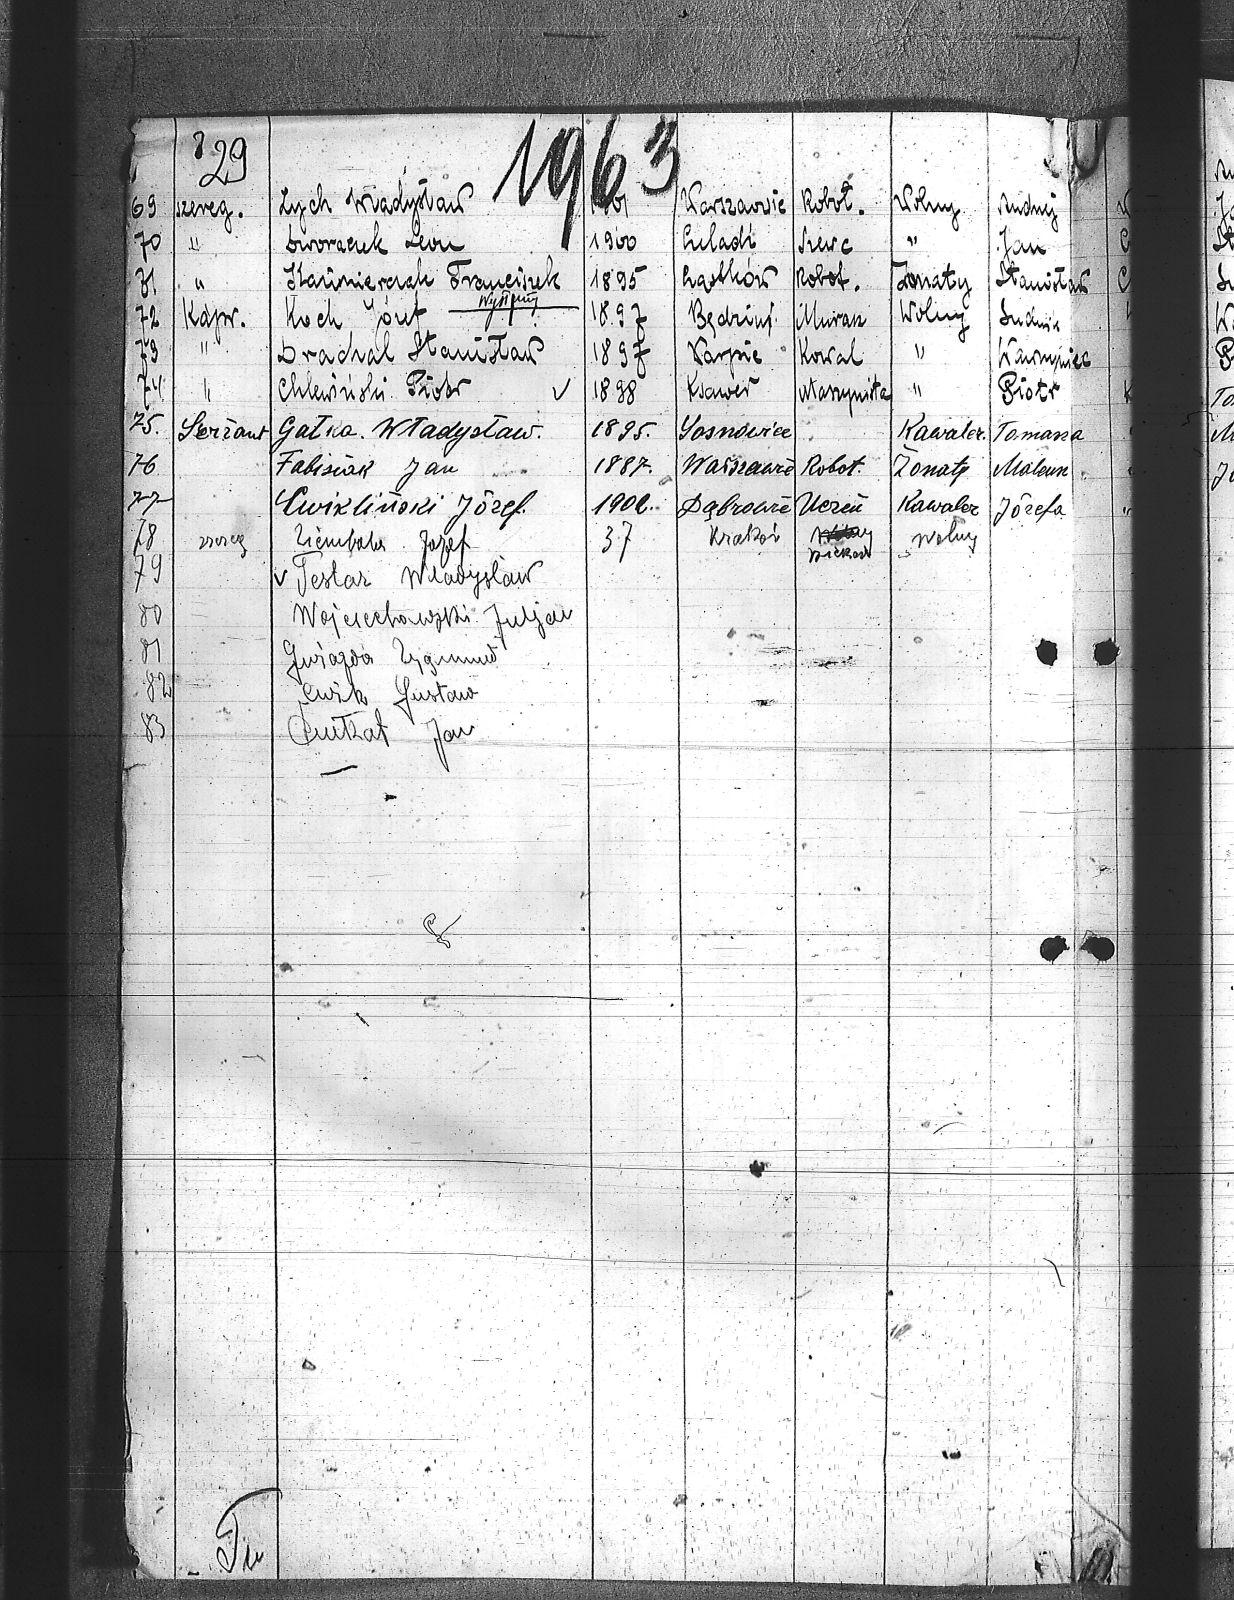 29
1963
69 szereg. Zych Władysław Warszawie Robot. Wolny
70 " Leon 1900 Czeladź Szewc " Jan
" Kaźmierczak Franciszek 1895 Robot. Żonaty Stanisław
Wystąpił
72 Kapr. Koch Józef 1897 Będzin Murarz Wolny Ludwik
73 " Drachal Stanisław 1897 Kowal " Wawrzyniec
74 " Chlewiński Piotr 1898 Ksawer Maszynista " Piotr
75. Serżant Gałka. Władysław. 1895. Sosnowice Kawaler. Tomasza
76 Fabisiak Jan 1887. Warszawie Robot. Żonaty
77 Ćwikliński Józef. Dąbrowie Uczeń Kawaler Józefa
78 Ziembala Józef 37 Kraków Wolny
79 Teslar Władysław
80 Wojciechowski Juljan
81 Gwiazda Zygmund
82 Ćwik Gustaw
83 Jan